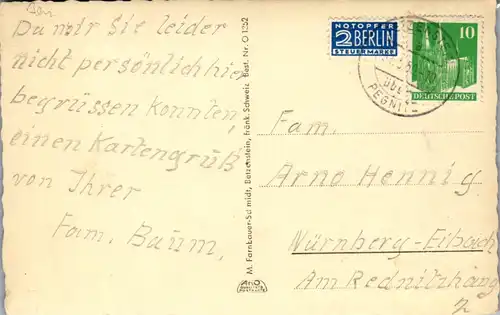 Da wir sie leider
nicht persönlich hier
begrüssen konnten,
einen Kartengruß
von Ihrer
Fam. Baum.
M. Farnbauer-Schmidt, Betzenstein, fränk. Schweiz. Best. Nr. O 1352
NOTOPFER
2 BERLIN
STEUERMARKE
10
DEUTSCHE POST
PEGNITZ
Fam.
Arno Hennig
Nürnberg-Eibach
Am Rednitzhang
2